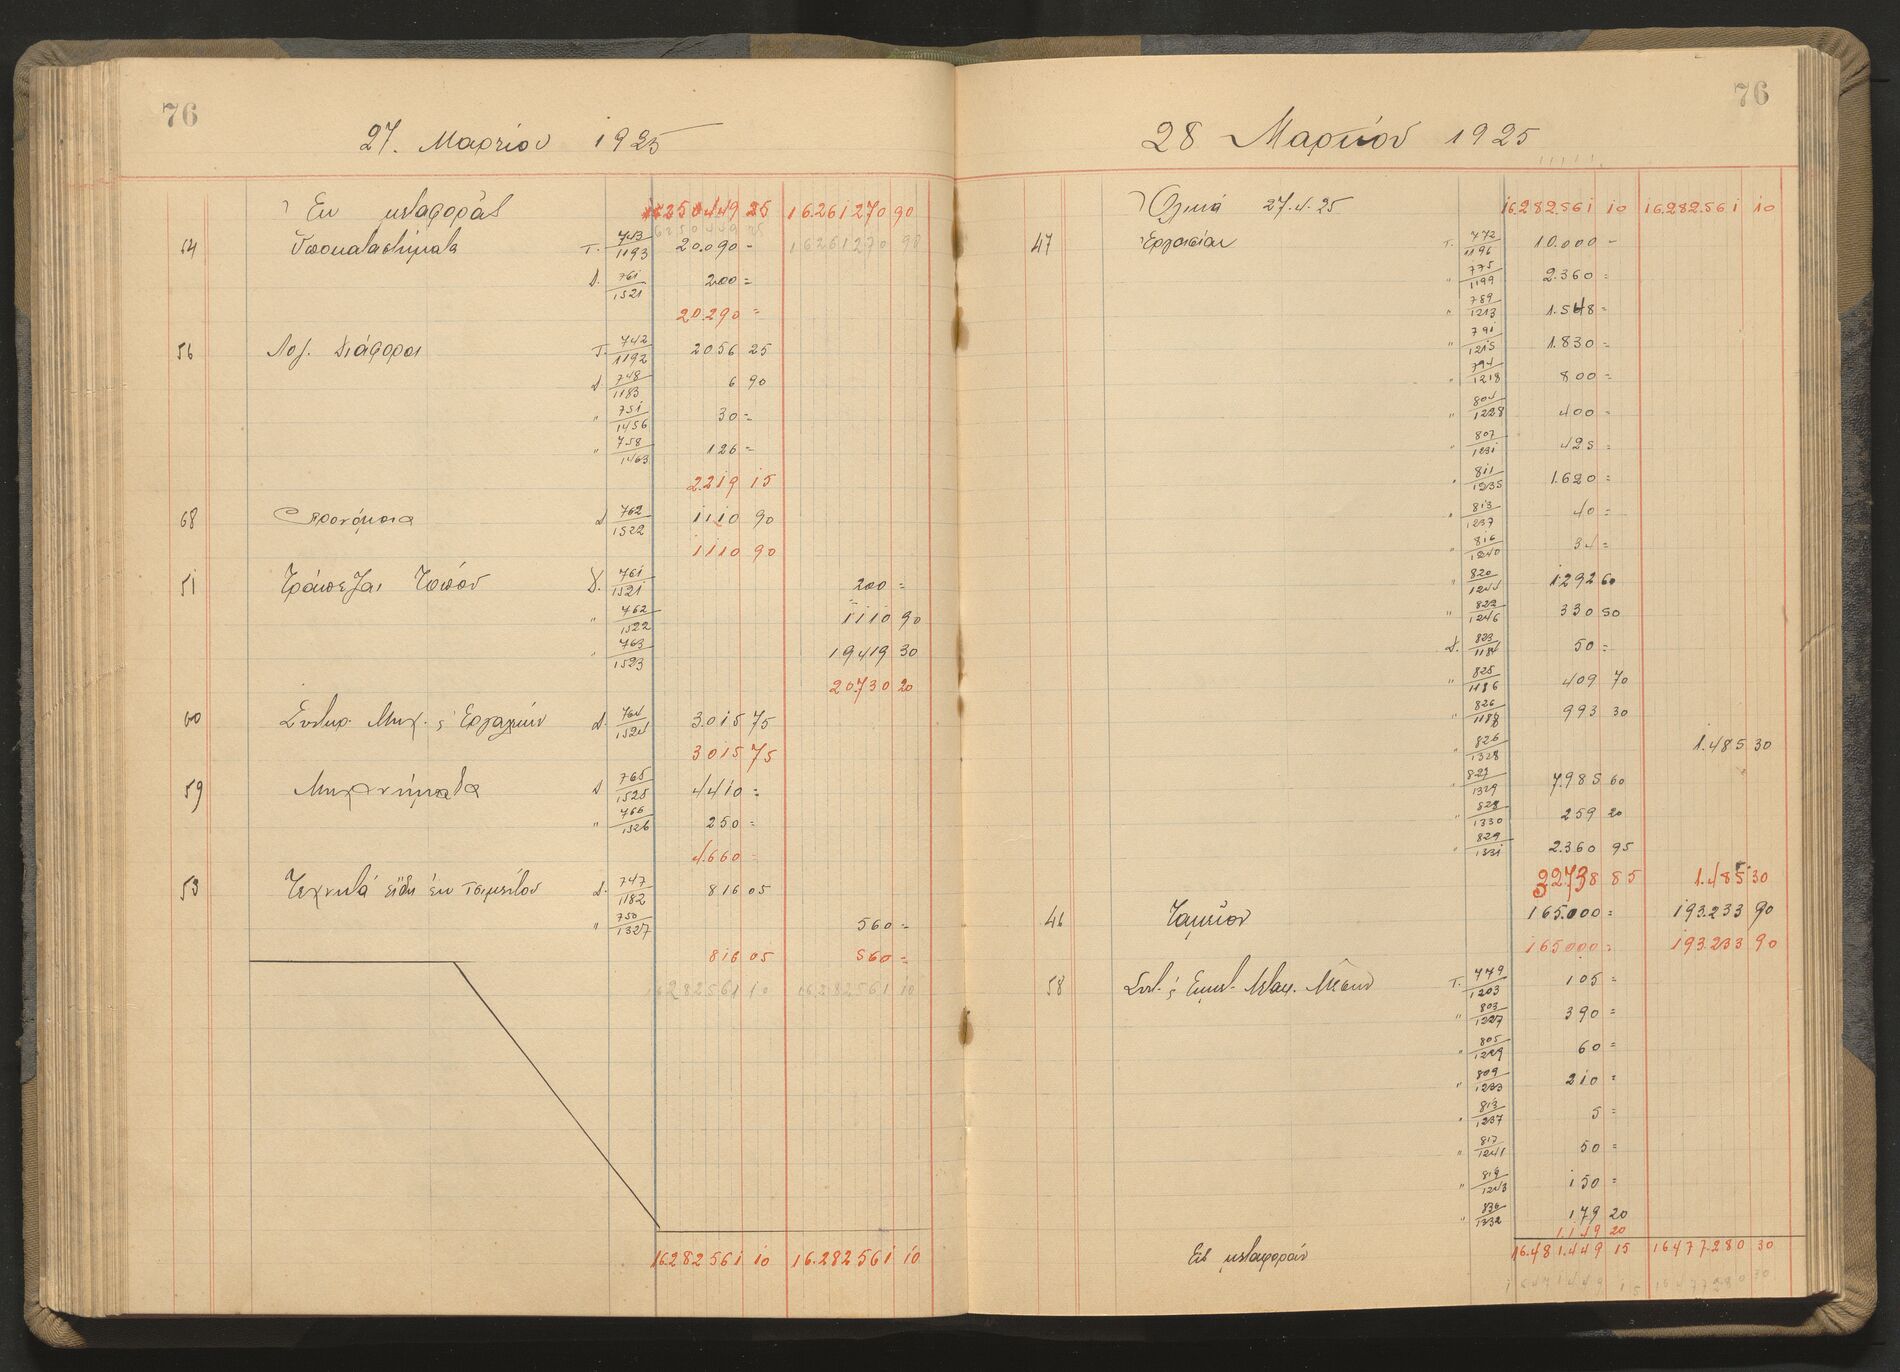 76
27. Μαρτίου 1925
Εκ μεταφοράς 16.261270 90
6250449 25 16261270 90
54 Υποκαταστήματα Τ. 743/1193 20.090 -
Δ. 761/1521 200 =
20.290 =
56 Λογ. Διάφοροι Τ. 742/1192 2056 25
Δ 748/1183 6 90
" 751/1456 30 =
" 758/1463 126 =
2.219 15
68 Προνόμια Δ 762/1522 1110 90
1110 90
51 Τράπεζαι Τόπου Δ. 761/1521 200 =
" 762/1522 1110 90
" 763/1523 19419 30
20730 20
60 Συντηρ. Μηχ. ς Εργαλείων Δ. 764/1524 3.015 75
3015 75
59 Μηχανήματα Δ 765/1525 4410 =
" 766/1526 250 =
4.660 =
53 Τεχνητά είδη εκ τσιμέντου Δ. 747/1182 816 05
" 750/1327 560 =
816 05 560 =
16282561 10 16282561 10
16.282561 10 16.282561 10
76
28 Μαρτίου 1925
Ολικά 27.4.25 16.282.561 10 16.282.561 10
47 Εργασίαι Τ. 772/1196 10.000 -
" 775/1199 2.360 =
" 789/1213 1.548 =
" 791/1215 1.830 =
" 794/1218 800 =
" 804/1228 400 =
" 807/1231 425 =
" 811/1235 1.620 =
" 813/1237 40 =
" 816/1240 34 =
" 820/1244 1292 60
" 822/1246 330 50
Δ. 823/1184 50 =
" 825/1186 409 70
" 826/1188 993 30
" 826/1328 1.485 30
" 827/1329 7.985 60
" 828/1330 259 20
" 829/1331 2.360 95
32738 85 1.485 30
46 Ταμείον 165.000 = 193.233 90
165000 = 193.233 90
58 Συντ. ς Εκμετ. Μεταφ. Μέσων Τ. 779/1203 105 =
" 803/1227 390 =
" 805/1229 60 =
" 809/1233 210 =
" 813/1237 5 =
" 817/1241 50 =
" 819/1243 150 =
" 830/1332 179 20
1149 20
Εις μεταφοράν 16.481.449 15 16477.280 30